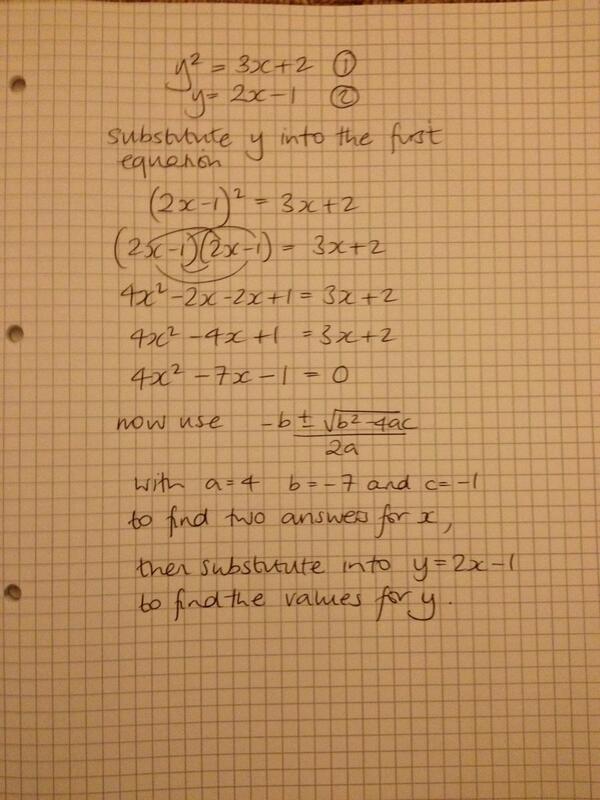 y² = 3x+2 ①
y = 2x-1 ②
substitute y into the first
equation
(2x-1)² = 3x+2
(2x-1)(2x-1) = 3x+2
4x²-2x-2x+1 = 3x+2
4x²-4x+1 = 3x+2
4x²-7x-1 = 0
now use -b ± √b²-4ac
2a
with a=4 b=-7 and c=-1
to find two answers for x,
then substitute into y=2x-1
to find the values for y.